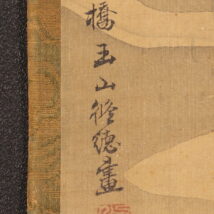 橋玉山脩德畫